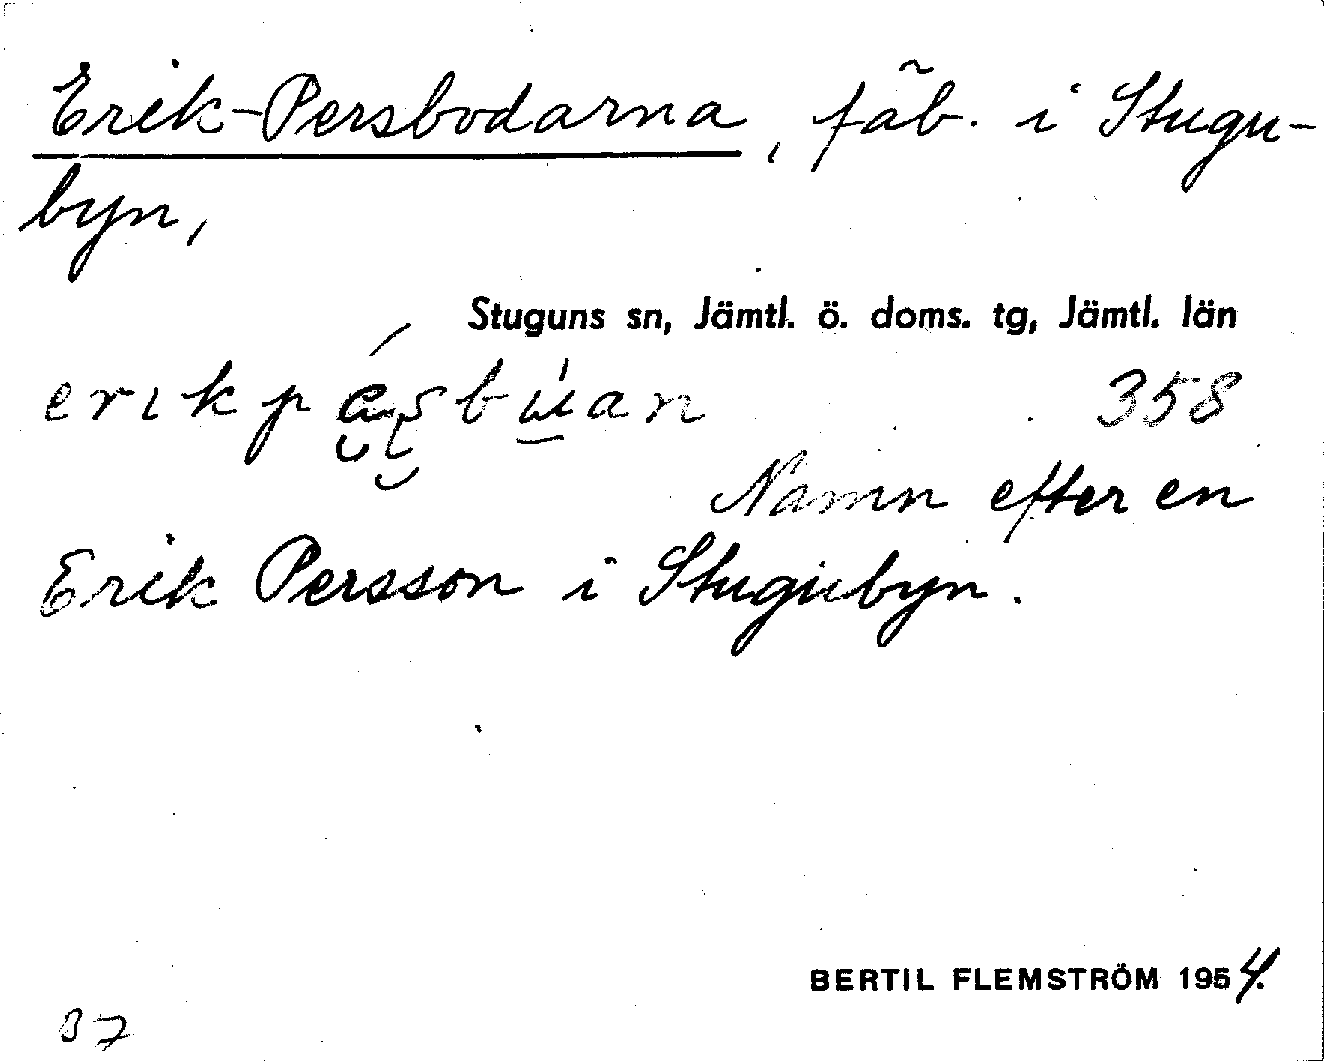 Erik-Persbodarna, fäb. i Stugu-
byn,
Stuguns sn, Jämtl. ö. doms. tg, Jämtl. län
358
Namn efter en
Erik Persson i Stugubyn.
BERTIL FLEMSTRÖM 1954.
37